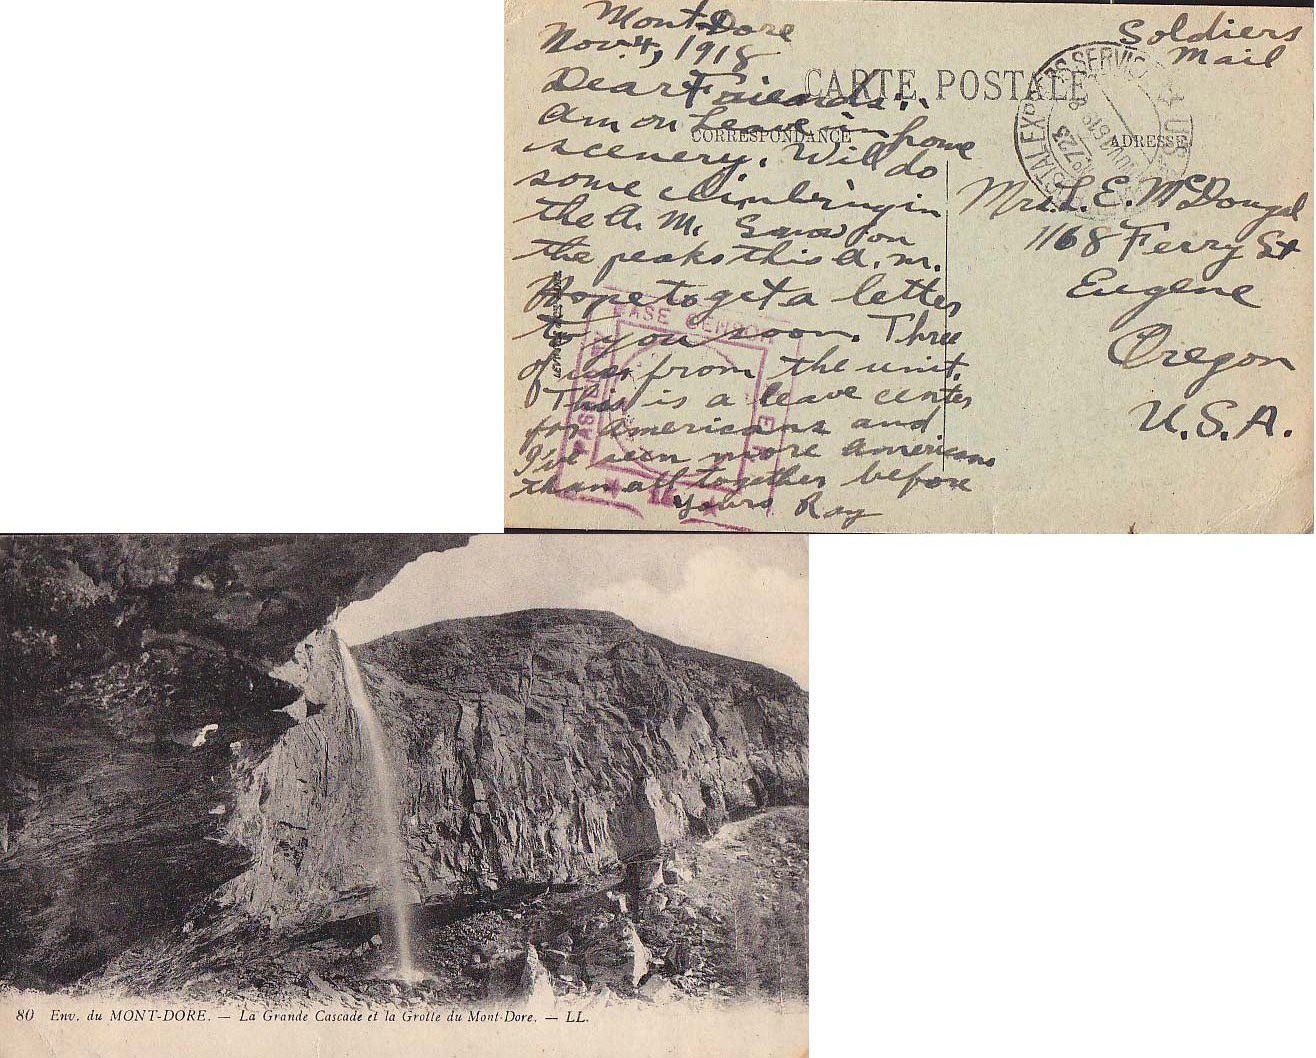 Mont-Dore
Nov. 4, 1918
Dear Friends:
Am on leave in some
scenery. Will do
some climbing in
the A. M. Snow on
the peaks this a.m.
Hope to get a letter
to you soon. Three
of us from the unit.
This is a leave center
for Americans and
I've seen more Americans
than all together before
Yours Ray
Soldiers
Mail
CARTE POSTALE
CORRESPONDANCE
ADRESSE
POSTAL EXPRESS SERVICE
No. 723
U.S.
Mrs. L. E. McDougal
1168 Ferry St
Eugene
Oregon
U.S.A.
BASE CENSOR
80 Env. du MONT-DORE. — La Grande Cascade et la Grotte du Mont-Dore. — LL.